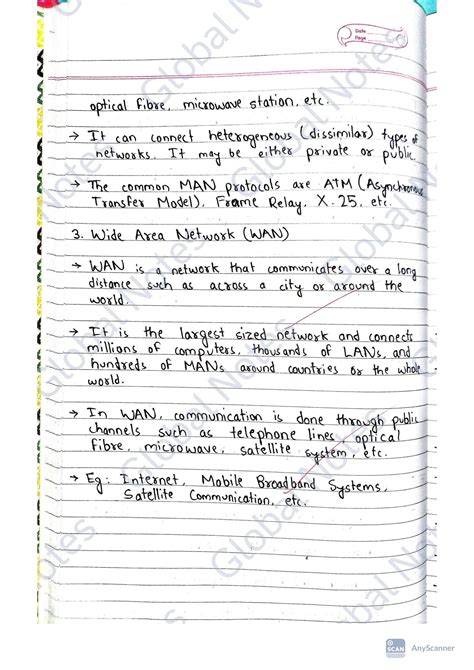 Date
Page
optical fibre, microwave station, etc.
→ It can connect heterogeneous (dissimilar) types of
networks. It may be either private or public.
→ The common MAN protocols are ATM (Asynchronous
Transfer Model), Frame Relay, X.25, etc.
3. Wide Area Network (WAN)
→ WAN is a network that communicates over a long
distance such as across a city or around the
world.
→ It is the largest sized network and connects
millions of computers, thousands of LANs, and
hundreds of MANs around countries or the whole
world.
→ In WAN, communication is done through public
channels such as telephone lines, optical
fibre, microwave, satellite system, etc.
→ Eg: Internet, Mobile Broadband Systems,
Satellite Communication, etc.
Global Notes
Global Notes
Global Notes
Global Notes
Global Notes
SCAN
AnyScanner